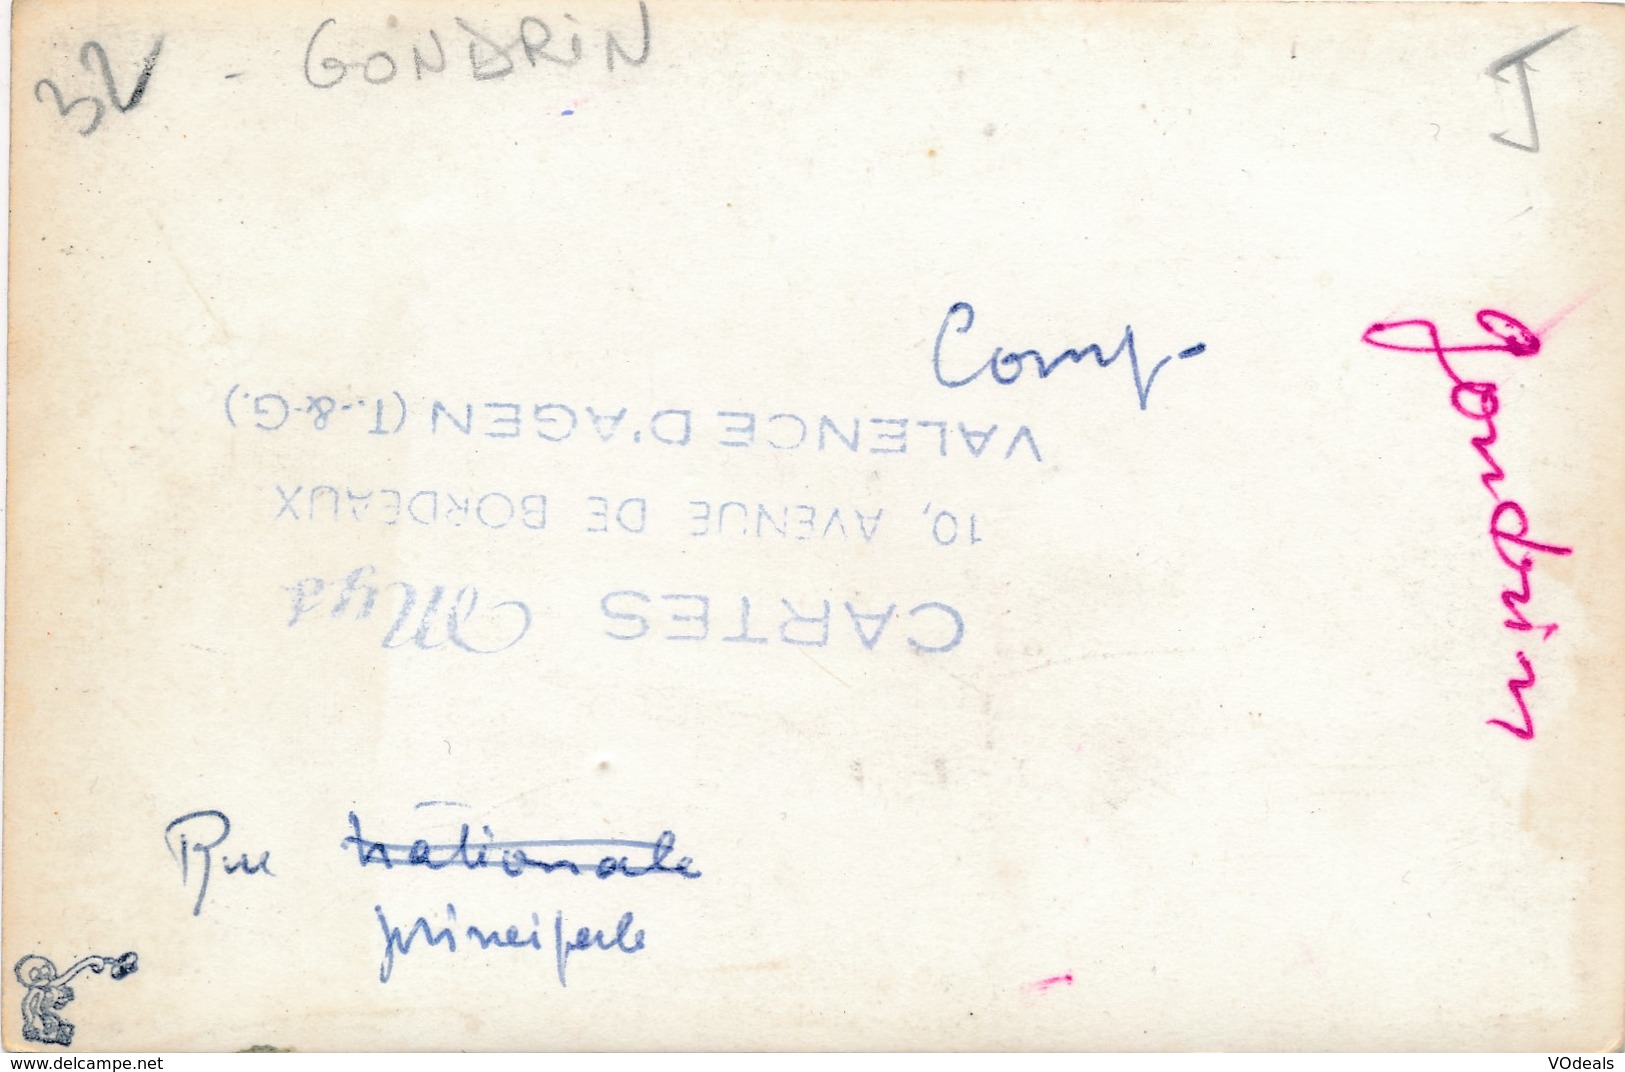 32 - GONDRIN
J
Comp-
gondrin
CARTES Mys
10, AVENUE DE BORDEAUX
VALENCE D'AGEN (T.-&-G.)
Rue nationale
principale
www.delcampe.net
VOdeals